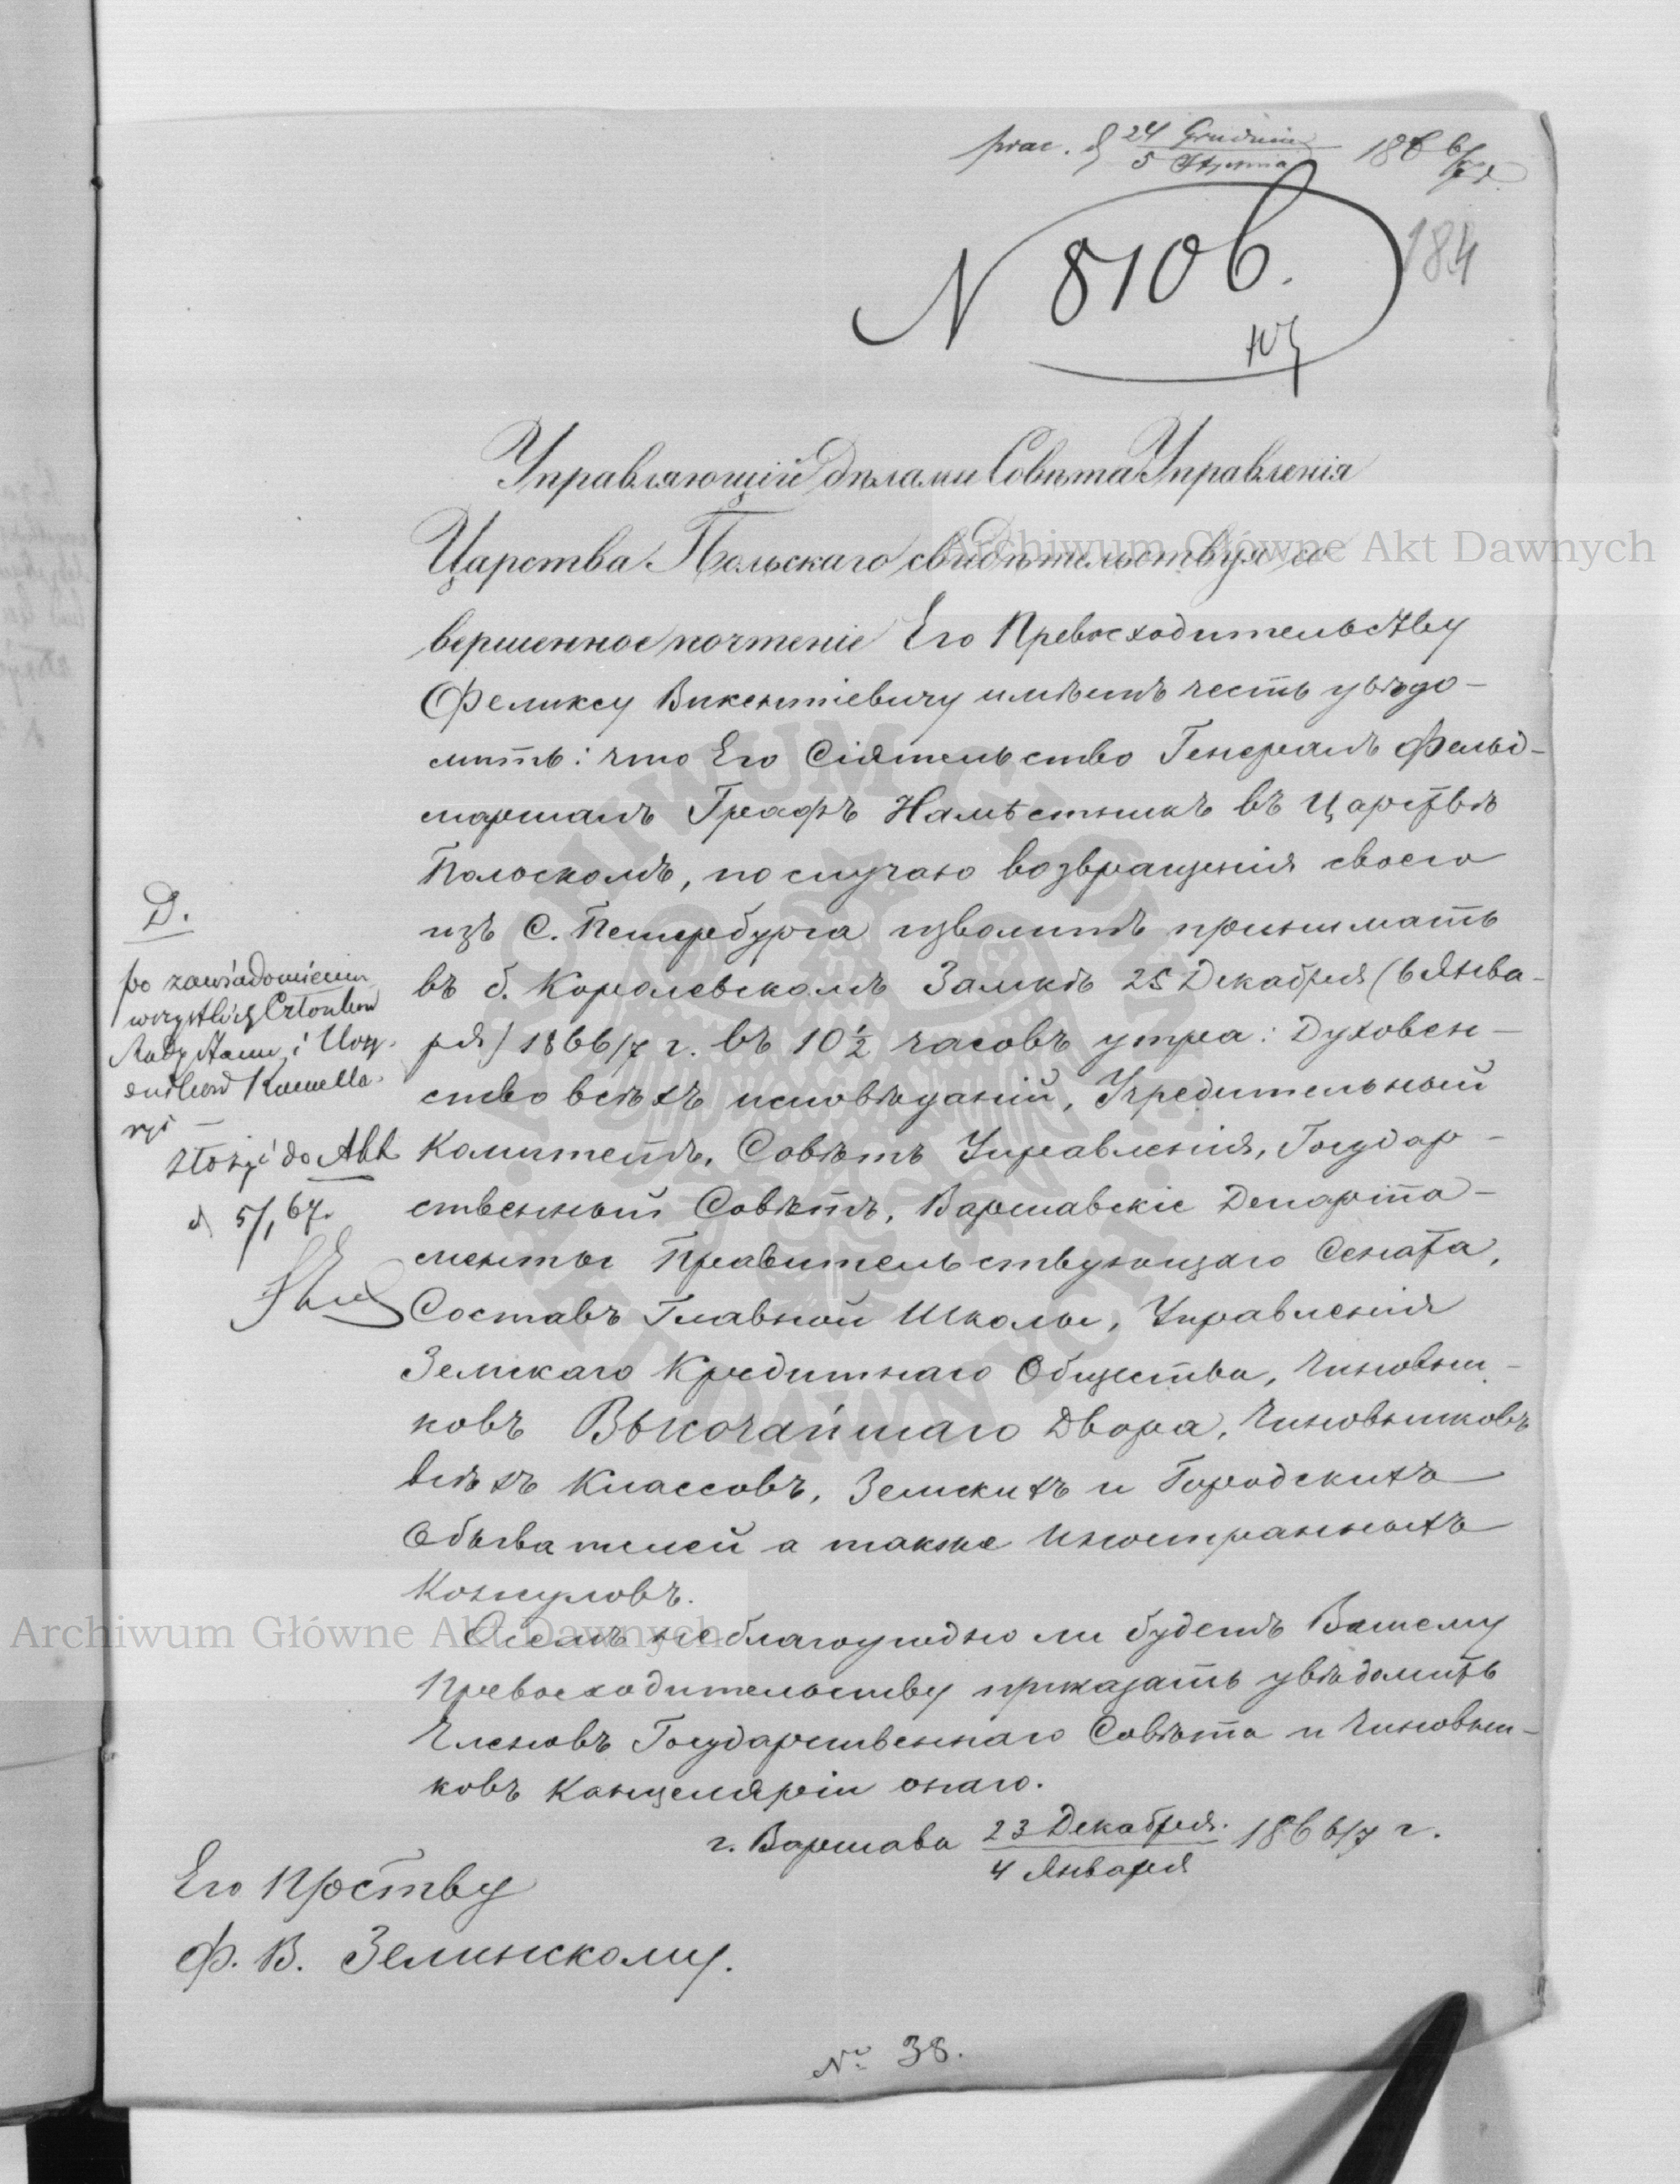 prac. d 24 Grudnia 1866/7 r.
5 Stycznia
N 8106.
184
Управляющій Дѣлами Совѣта Управленія
Царства Польскаго свидѣтельствуя со
вершенное почтеніе Его Превосходительству
Феликсу Викентіевичу имѣетъ честь увѣдо-
мить: что Его Сіятельство Генералъ Фельд-
маршалъ Графъ Намѣстникъ въ Царствѣ
Польскомъ, по случаю возвращенія своего
изъ С. Петербурга изволитъ принимать
въ б. Королевскомъ Замкѣ 25 Декабря (6 Янва-
ря) 1866/7 г. въ 10 1/2 часовъ утра: Духовен-
ство всѣхъ исповѣданій, Учредительный
Комитетъ, Совѣтъ Управленія, Государ-
ственный Совѣтъ, Варшавскіе Департа-
менты Правительствующаго Сената,
Составъ Главной Школы, Управленія
Земскаго Кредитнаго Общества, Чиновни-
ковъ Высочайшаго Двора, Чиновниковъ
всѣхъ Классовъ, Земскихъ и Городскихъ
Обывателей а также Иностранныхъ
Консуловъ.
не благоугодно ли будетъ Вашему
Превосходительству приказать увѣдомить
Членовъ Государственнаго Совѣта и Чиновни-
ковъ Канцеляріи онаго.
г. Варшава 23 Декабря. 1866/7 г.
4 Января
D.
po zawiadomieniu
wszystkich Członków
Rady Stanu i Urzę-
dników Kancella-
ryi —
złożyć do Akt
d 5/1 67.
Его Прству
Ф. В. Зелинскому.
№ 38.
Archiwum Główne Akt Dawnych
Archiwum Główne Akt Dawnych
ARCHIWUM GŁÓWNE AKT DAWNYCH